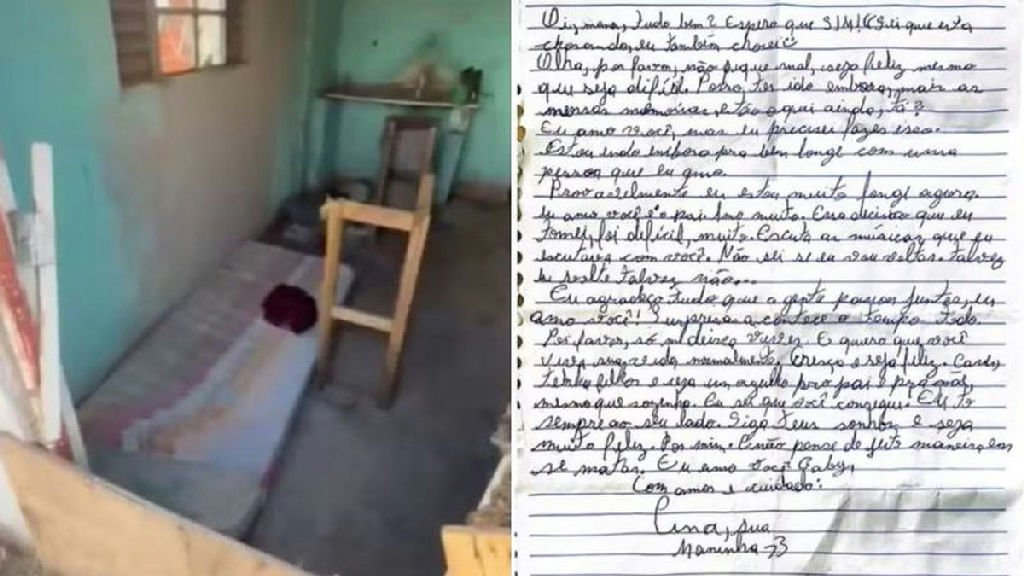 Oi, mana, tudo bem? Espero que SIM! Sei que esta
chorando, eu também chorei
Olha, por favor, não fique mal, seja feliz mesmo
que seja difícil. Posso ter ido embora, mais as
nossas memórias estão aqui ainda, tá?
Eu amo você, mas eu precisei fazer isso.
Estou indo embora pra bem longe com uma
pessoa que eu amo.
Provavelmente eu estou muito longe agora.
Eu amo você e o pai. Amo muito. Essa decisão que eu
tomei, foi difícil, muito. Escuta as músicas que eu
escutava com você. Não sei se eu vou voltar. Talvez
eu volte talvez não...
Eu agradeço tudo que a gente passou juntas, eu
amo você! acontece o tempo todo.
Por favor, só me deixa viver. E quero que você
viva sua vida normalmente. Cresça e seja feliz. Case,
tenha filhos e seja um orgulho pro pai e pra mãe,
mesmo que sozinha. Eu sei que você consegue. Eu to
sempre ao seu lado. Siga teus sonhos e seja
muito feliz. Por mim. E não pense de jeito maneira, em
se matar. Eu amo você Gaby,
Com amor e cuidado:
sua
Maninha <3